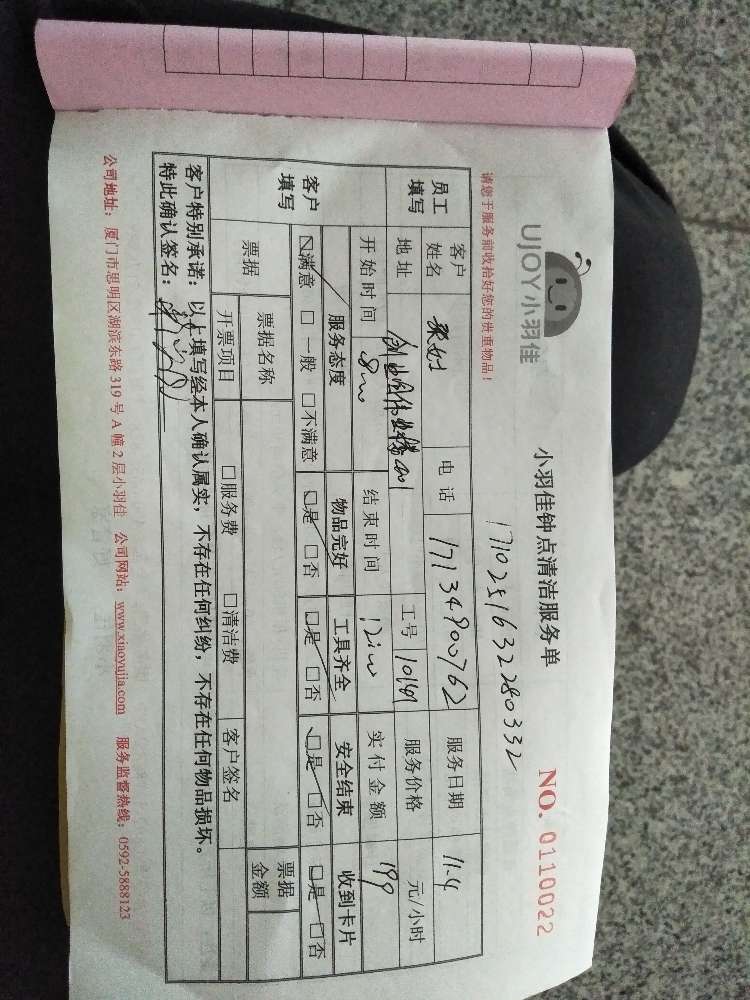 UJOY小羽佳
小羽佳钟点清洁服务单
NO. 0110022
请您于服务前收拾好您的贵重物品！
171025163228033 2
员工填写
客户姓名 电话 17134900762 服务日期 11-4
地址 工号 10141 服务价格 元/小时
开始时间 结束时间 实付金额 199
客户填写
服务态度 物品完好 工具齐全 安全结束 收到卡片
满意 一般 不满意 是 否 是 否 是 否 是 否
票据 票据名称 票据金额
开票项目 服务费 清洁费 客户签名
客户特别承诺：以上填写经本人确认属实，不存在任何纠纷，不存在任何物品损坏。
特此确认签名：
公司地址：厦门市思明区湖滨东路319号A幢2层小羽佳 公司网站：www.xiaoyujia.com 服务监督热线：0592-5888123